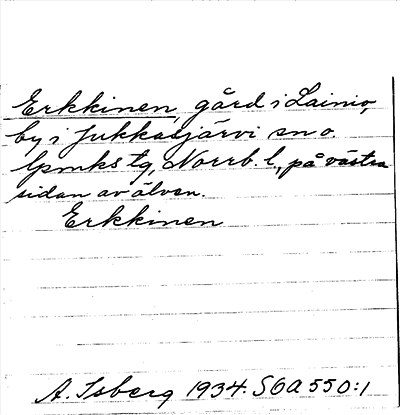 Erkkinen, gård i Lainio,
by i Jukkasjärvi sn o.
lpmks tg, Norrb. l., på västra
sidan av älven.
Erkkinen
A. Isberg 1934. SOA 550:1